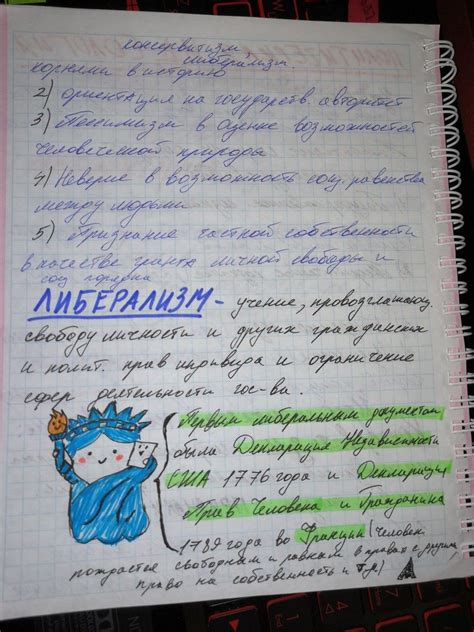 консервитизм
либерализм
корнями в историю
2) ориентация на государств. авторитет
3) Пессимизм в оценке возможностей
человеческой природы
4) Неверие в возможность соц. равенства
между людьми
5) Признание частной собственности
в качестве гранта личной свободы и
соц порядка
ЛИБЕРАЛИЗМ - учение, провозглашающ.
свободу личности и других гражданских
и полит. прав индивида и ограничение
сфер деятельности гос-ва.
Первым либеральным документом
была Декларация Независимости
США 1776 года и Декларация
Прав Человека и Гражданина
1789 года во Франции (человек
рождается свободным и равным в правах с другими,
право на собственность и т.д)